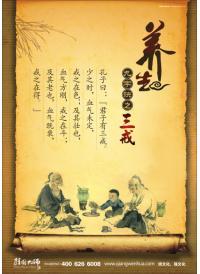 养生
九字诀之
三戒
孔子曰：“君子有三戒，
少之时，血气未定，
戒之在色；及其壮也，
血气方刚，戒之在斗；
及其老也，血气既衰，
戒之在得。”
400 626 6008
www.qiangwenhua.com